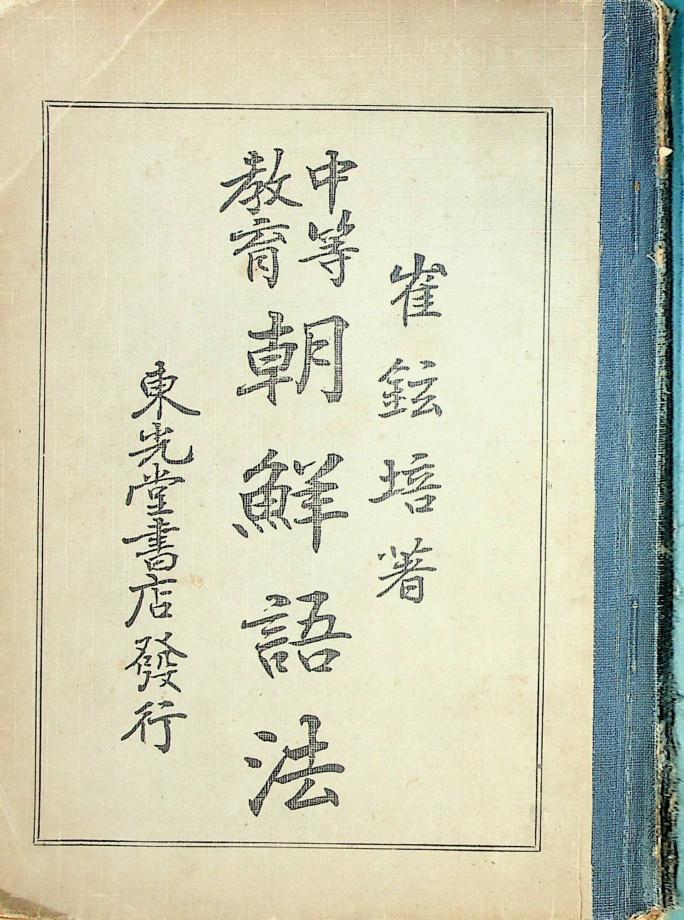 崔鉉培著
中等
教育
朝鮮語法
東光堂書店發行